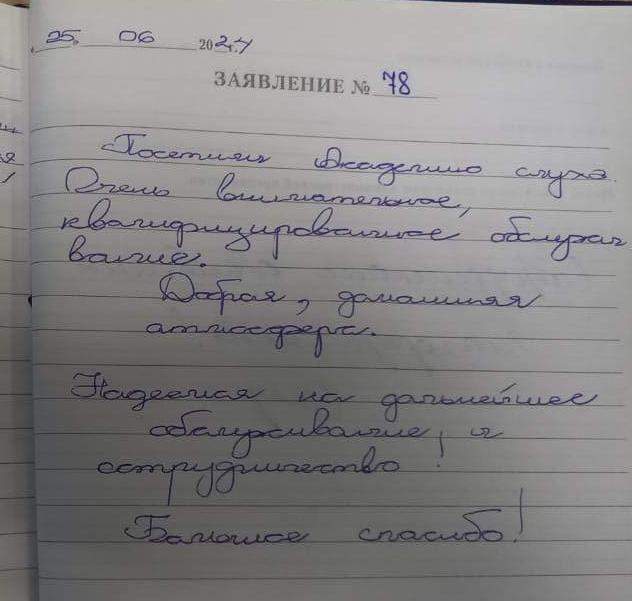 25. 06 2024
ЗАЯВЛЕНИЕ № 78
Посетили Академию слуха.
Очень внимательное,
квалифицированное обслужи
вание.
Добрая, домашняя
атмосфера.
Надеемся на дальнейшее
обслуживание, и
сотрудничество!
Большое спасибо!